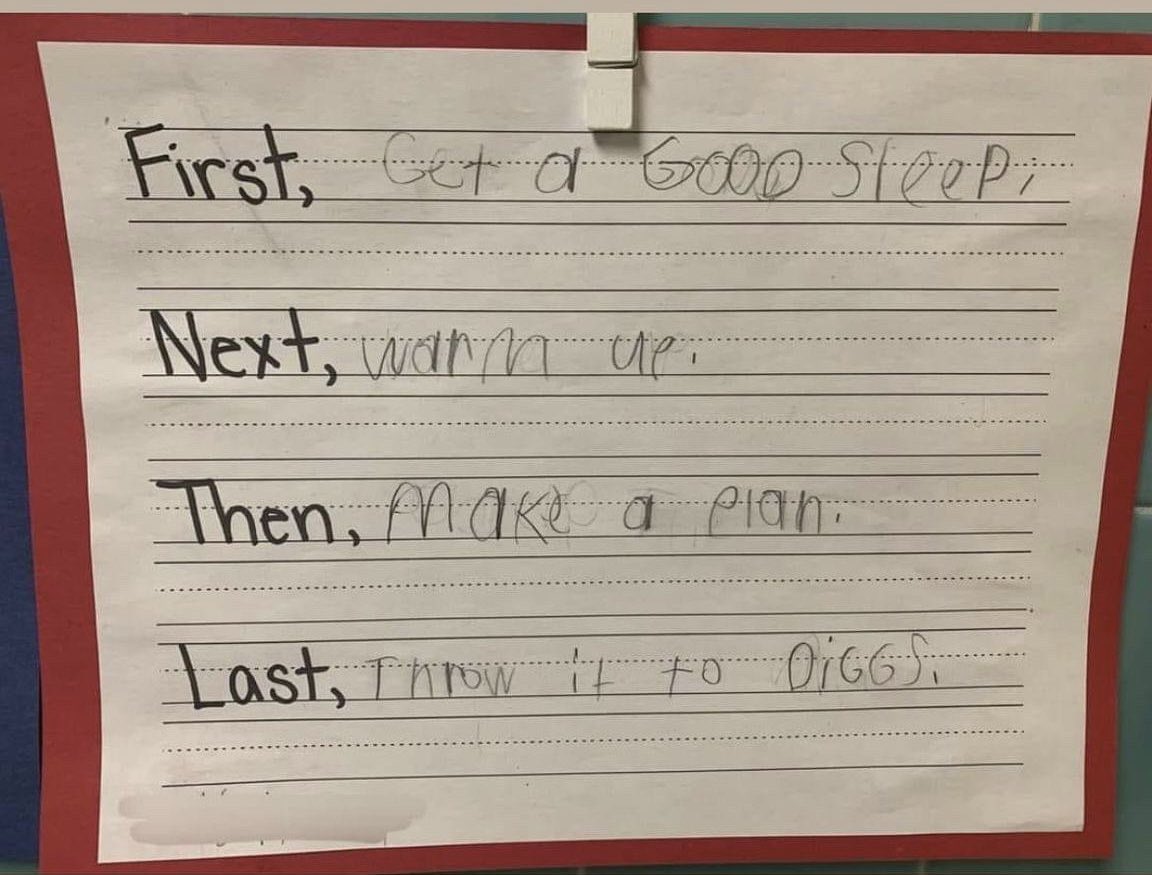 First, Get a Good Sleep.
Next, warm up.
Then, Make a plan.
Last, Throw it to DiGGS.